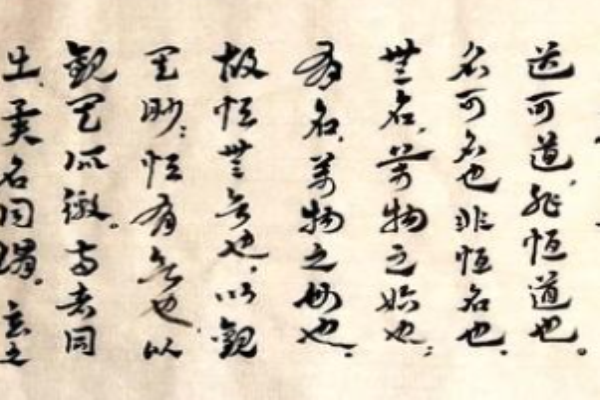 道可道,非恒道也。
名可名也非恒名也.
無名,萬物之始也;
有名,萬物之母也.
故恒無欲也,以觀
其眇;恒有欲也,以
觀其所徼。两者同
出,異名同謂。玄之